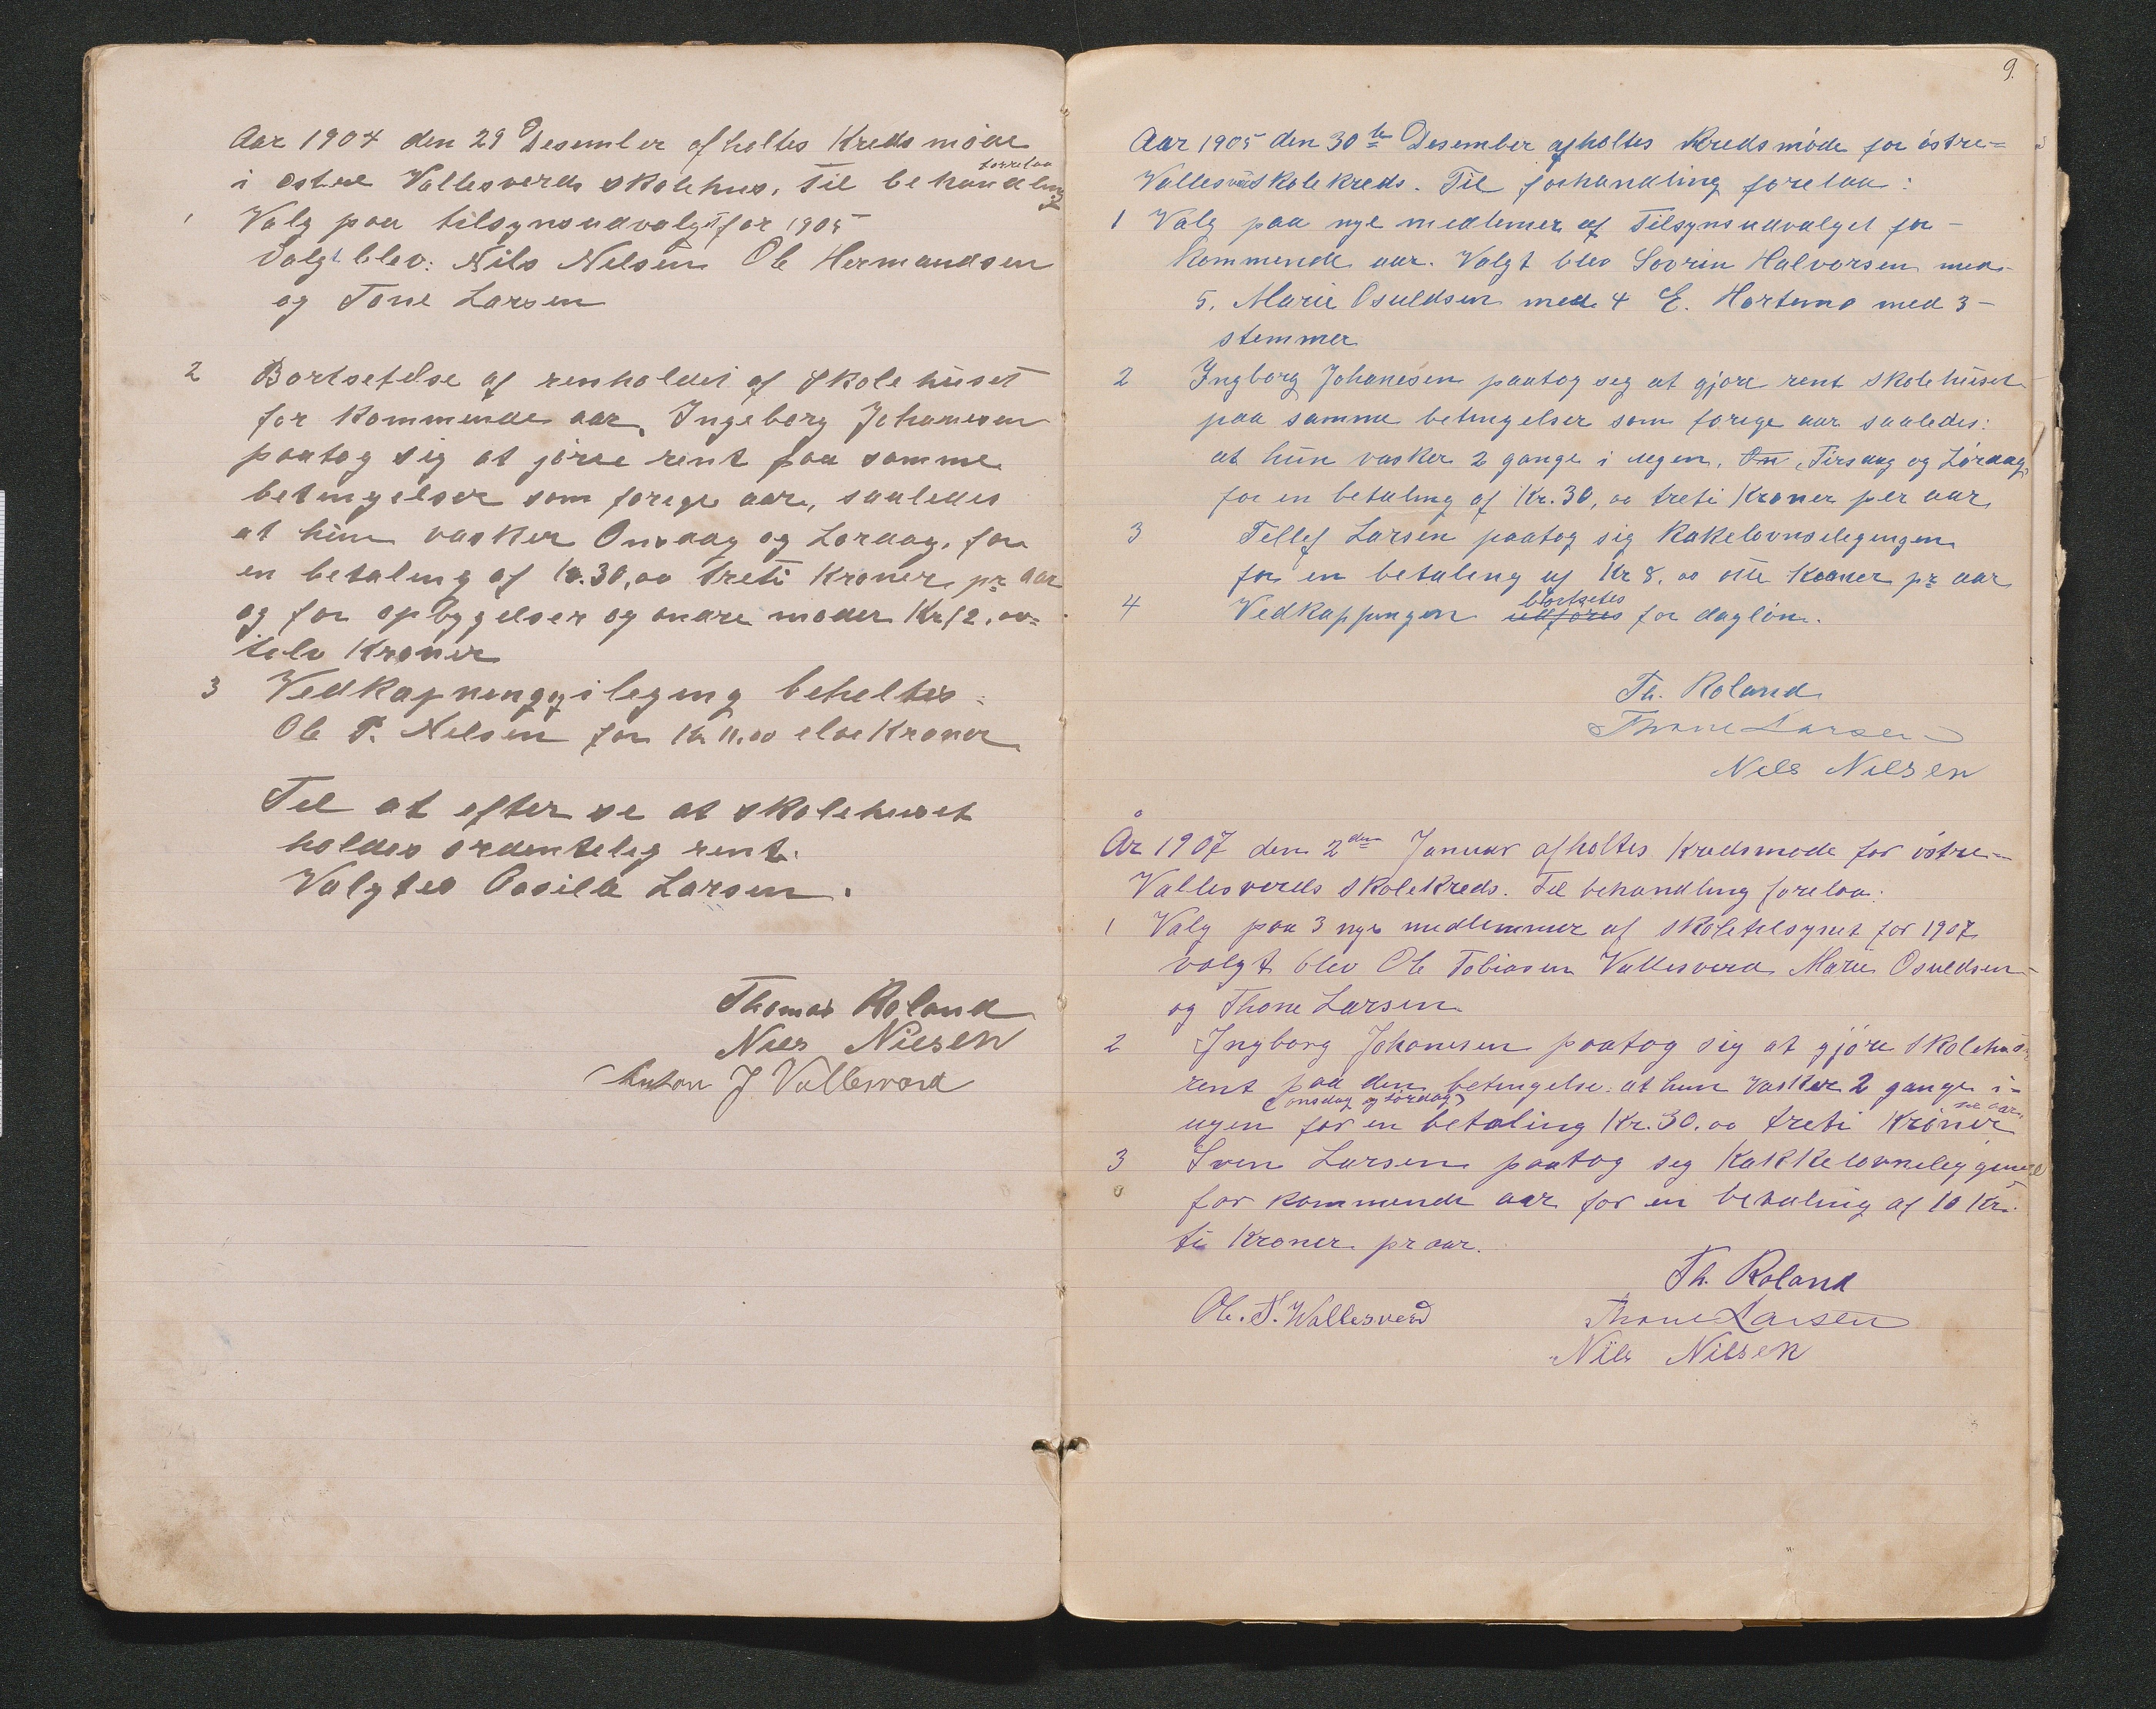 Aar 1904 den 29 Desember afholtes Kredsmøde
i østre Vallesverds skolehus. Til behandling forrelaa
1 Valg paa tilsynsudvalgt for 1905
Valgt blev: Nils Nelsen Ole Hermandsen
og Tone Larsen
2 Bortsetelse af renholdet af Skolehuset
for Kommende aar, Ingeborg Johanesen
paatog sig at jøre rent paa samme
betingelser som forige aar, saaledes
at hun vasker Onsdag og Lørdag. for
en betaling af Kr. 30,00 treti Kroner pr aar
og for opbyggelser og andre møder Kr 12.00=
tolv Kroner
3 Vedkapning og ileging beholtes
Ole P. Nelsen for Kr 11.00 elve Kroner
Til at efter se at skolehuset
holdes ordentelig rent.
Valgtes Aasile Larsen.
Thomas Roland
Niels Nielsen
Anton J Vallesverd
9.
Aar 1905 den 30te Desember afholtes Kredsmøde for østre=
Vallesverdskolekreds. Til forhandling forelaa:
1 Valg paa nye medlemer af Tilsynsudvalget for
Kommende aar. Valgt blev Sovrin Halvorsen med
5, Marie Osuldsen med 4 E. Hortemo med 3
stemmer
2 Ingborg Johanesen paatog seg at gjøre rent skolehuset
paa samme betingelser som forige aar saaledes:
at hun vasker 2 gange i ugen, On, Tirsdag og Lørdag,
for en betaling af Kr. 30,00 treti Kroner per aar
3 Tellef Larsen paatog sig Kakelovnsilegingen
for en betaling af Kr 8.00 otte Kroner pr aar
4 Vedkappingen udføres bortsetes for dagløn.
Th. Roland
Thone Larsen
Nels Nilsen
År 1907 den 2den Januar afholtes Kredsmøde for østre
Vallesverds skolekreds. Til behandling forelaa:
1 Valg paa 3 nye medlemmer af skoletilsynet for 1907
valgt blev Ole Tobiasen Vallesverd Marie Osuldsen
og Thone Larsen
2 Ingborg Johanesen paatog sig at gjøre skolehus
rent paa den betingelse: at hun vasker 2 gange i=
ugen (onsdag og Lørdag) for en betaling Kr. 30.00 treti Kroner aar
3 Sven Larsen paatog seg Kakkelovnsileggingen
for kommende aar for en betaling af 10 Kr.
ti Kroner pr aar.
Th. Roland
Ole. T. Wallesverd Thone Larsen
Nils Nilsen